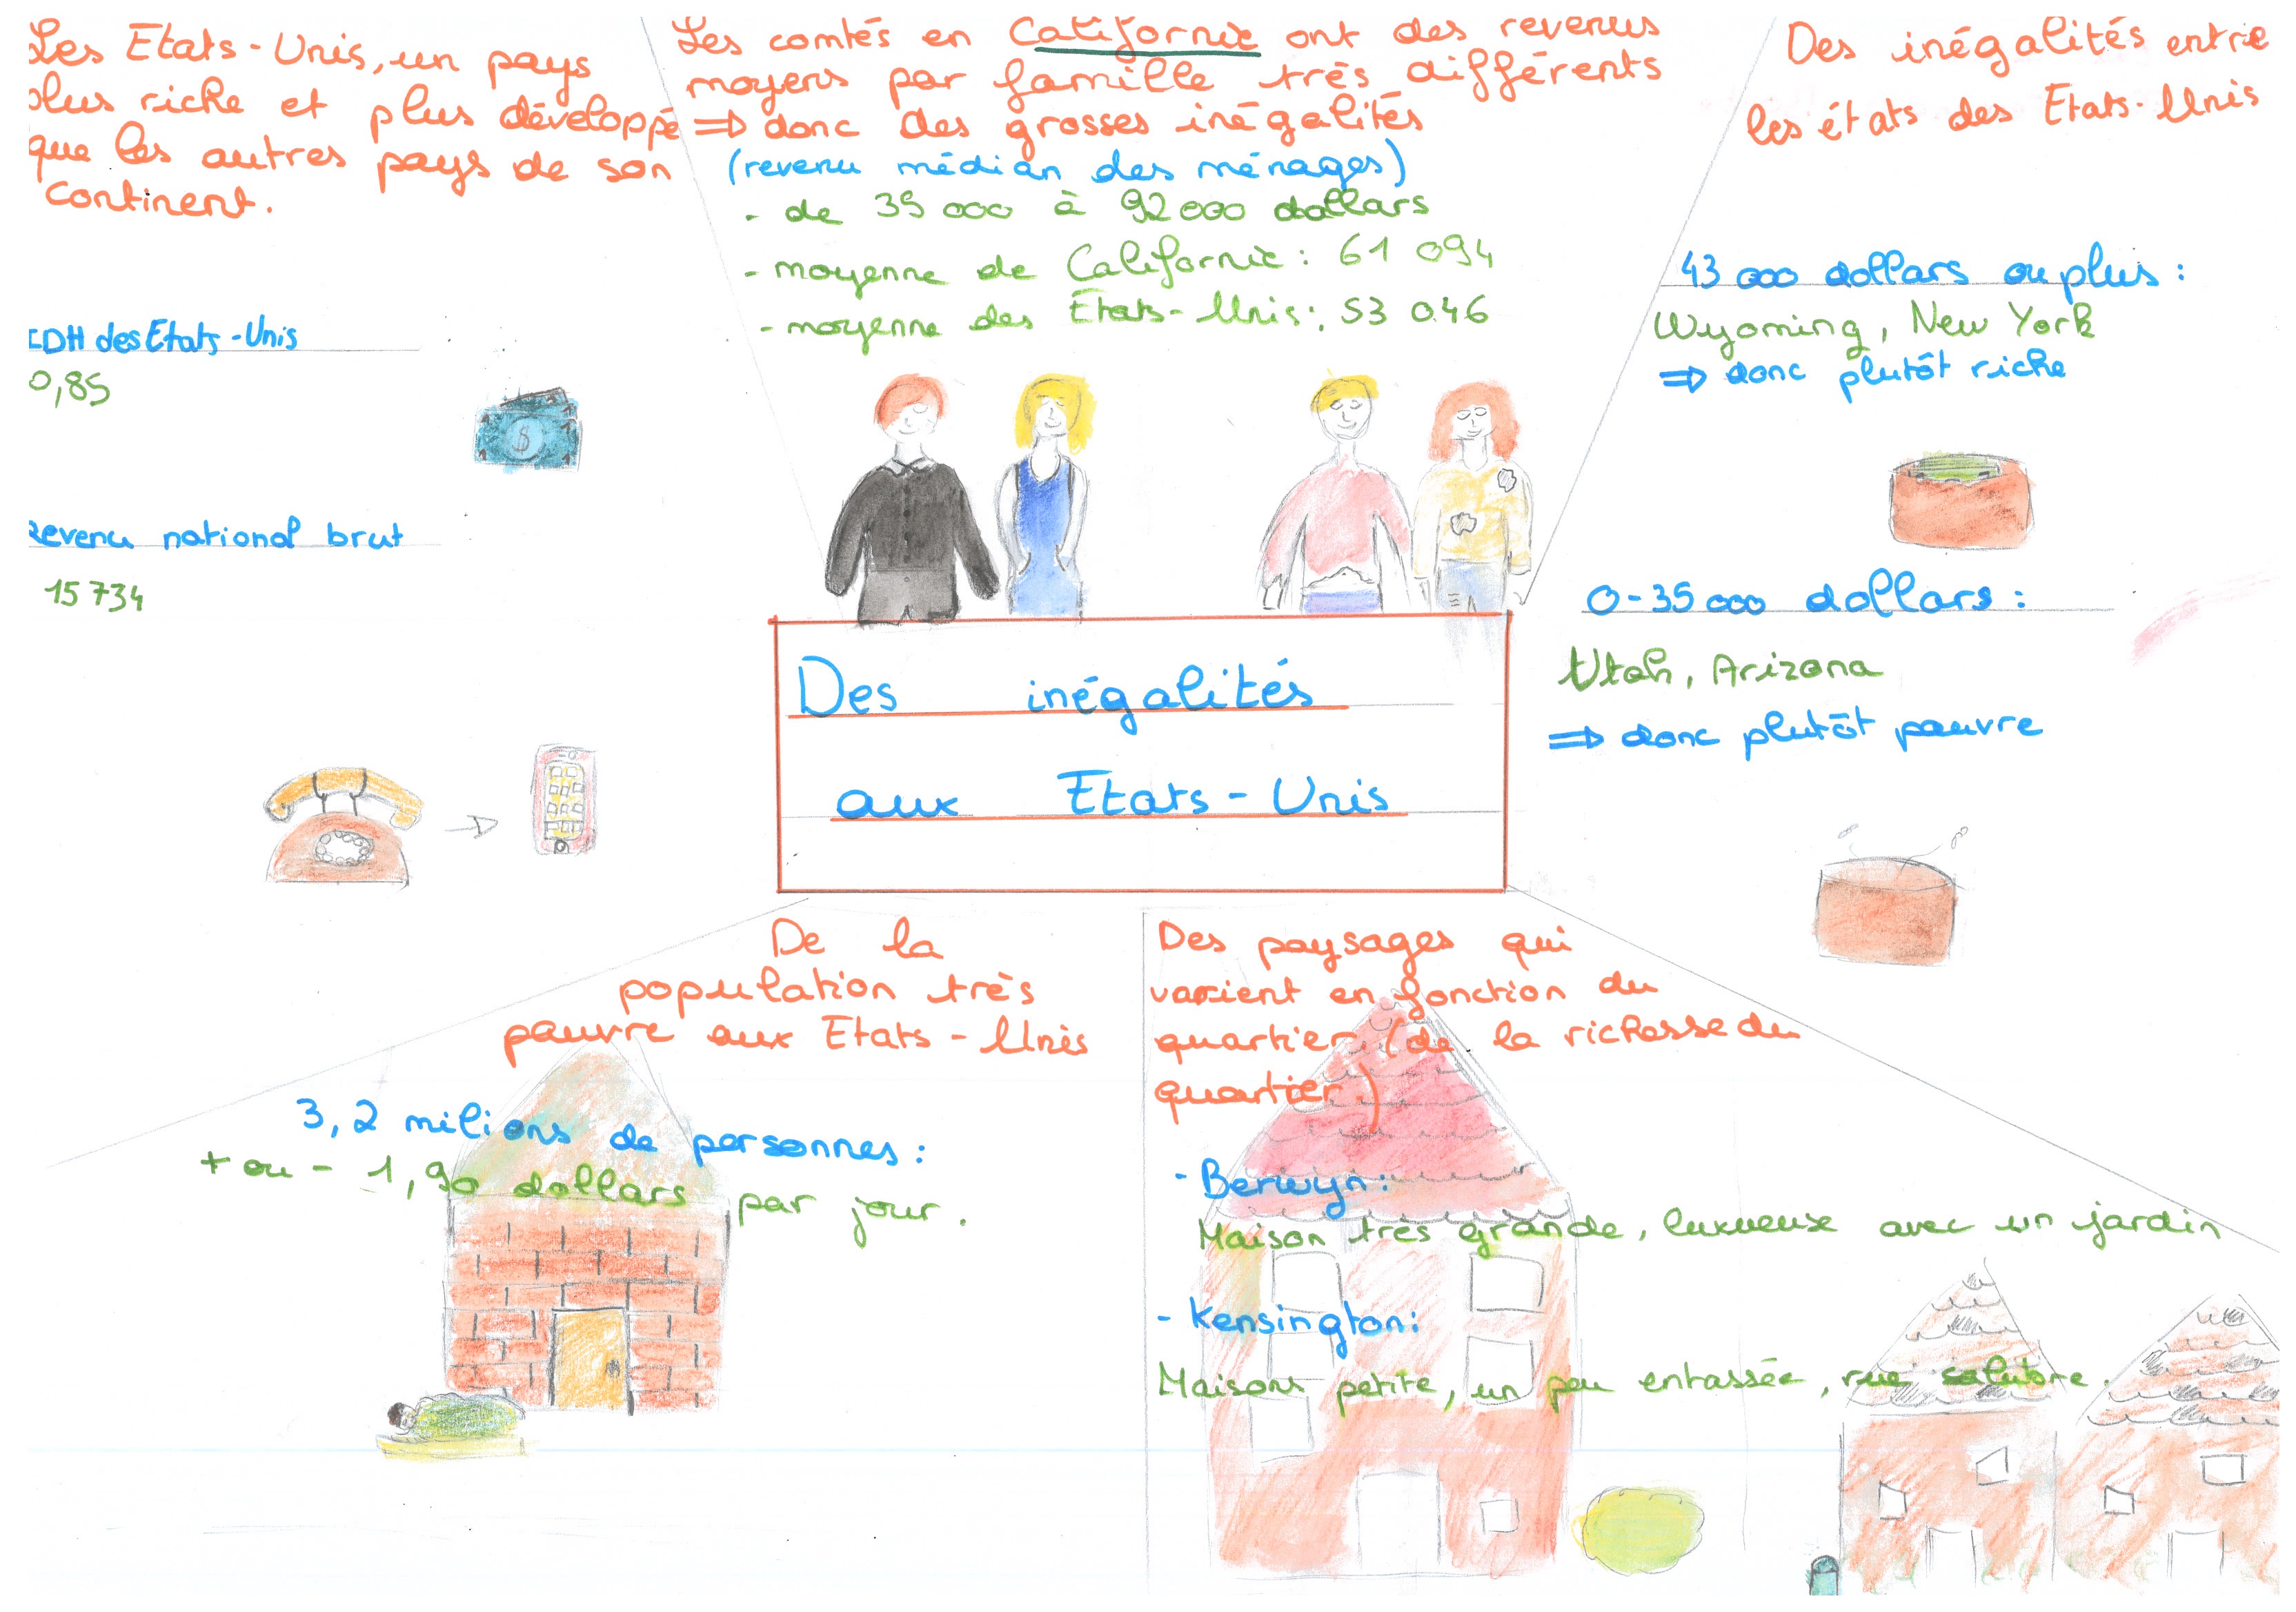 Les Etats-Unis, un pays
plus riche et plus développé
que les autres pays de son
continent.
IDH des Etats-Unis
0,85
Revenu national brut
15 734
Les comtés en Californie ont des revenus
moyens par famille très différents
⇒ donc des grosses inégalités
(revenu médian des ménages)
- de 35 000 à 92 000 dollars
- moyenne de Californie : 61 094
- moyenne des États-Unis : 53 046
Des inégalités entre
les états des Etats-Unis
43 000 dollars ou plus :
Wyoming, New York
⇒ donc plutôt riche
0-35 000 dollars :
Utah, Arizona
⇒ donc plutôt pauvre
$
Des inégalités
aux Etats-Unis
De la
population très
pauvre aux Etats-Unis
3,2 milions de personnes :
+ ou - 1,90 dollars par jour.
Des paysages qui
varient en fonction du
quartier (de la richesse du
quartier)
- Berwyn :
Maison très grande, luxueuse avec un jardin
- Kensington :
Maisons petite, un peu entassée, rue salubre.